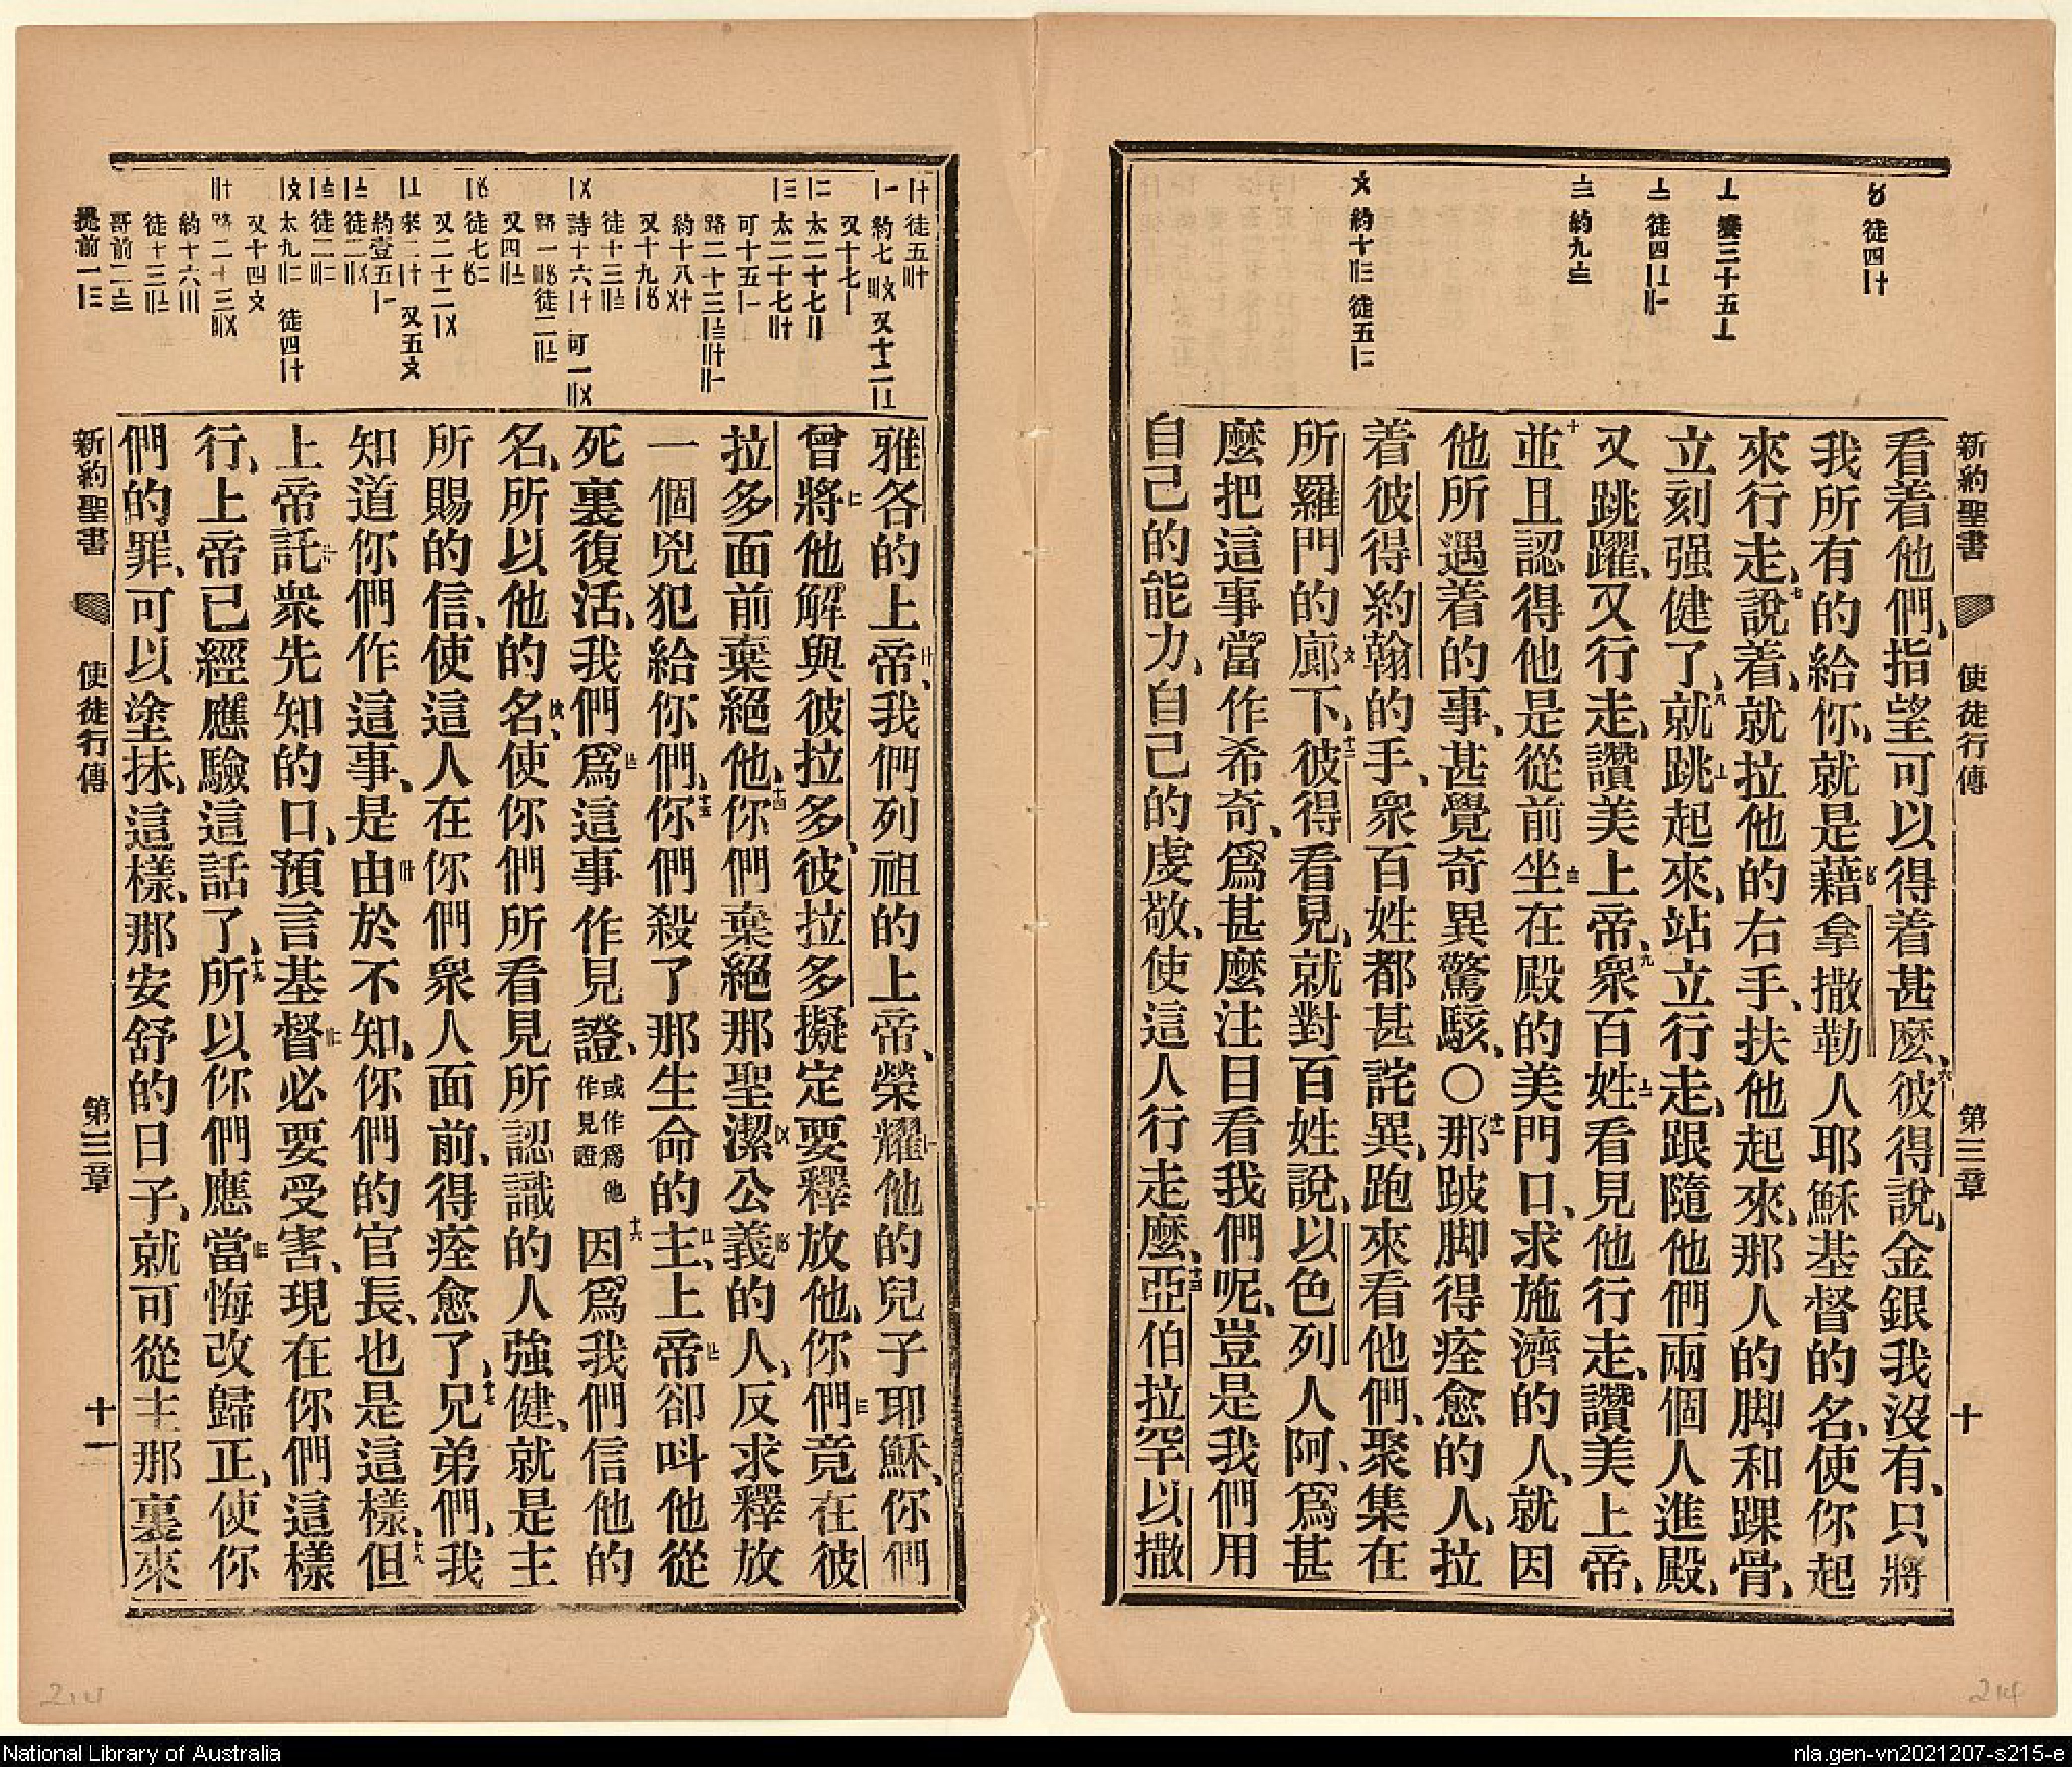 新約聖書　使徒行傳　第三章　十
徒四
徒四
約九
約十　徒五
看着他們、指望可以得着甚麽、六彼得說、金銀我沒有、只將
我所有的給你、就是藉拿撒勒人耶穌基督的名、使你起
來行走、七說着、就拉他的右手、扶他起來、那人的脚和踝骨、
立刻强健了、八就跳起來、站立行走、跟隨他們兩個人進殿、
又跳躍、又行走、讚美上帝、九衆百姓看見他行走、讚美上帝、
十並且認得他是從前坐在殿的美門口、求施濟的人、就因
他所遇着的事、甚覺奇異驚駭、〇十一那跛脚得痊愈的人、拉
着彼得約翰的手、衆百姓都甚詫異、跑來看他們、聚集在
所羅門的廊下、十二彼得看見、就對百姓說、以色列人阿、爲甚
麽把這事當作希奇、爲甚麽注目看我們呢、豈是我們用
自己的能力、自己的虔敬、使這人行走麽、十三亞伯拉罕以撒
雅各的上帝、我們列祖的上帝、榮耀他的兒子耶穌、你們
曾將他解與彼拉多、彼拉多擬定要釋放他、你們竟在彼
拉多面前棄絕他、十四你們棄絕那聖潔公義的人、反求釋放
一個兇犯給你們、十五你們殺了那生命的主、上帝卻呌他從
死裏復活、我們爲這事作見證、或作爲他作見證十六因爲我們信他的
名、所以他的名、使你們所看見所認識的人強健、就是主
所賜的信、使這人在你們衆人面前、得痊愈了、十七兄弟們、我
知道你們作這事、是由於不知、你們的官長、也是這樣、十八但
上帝託衆先知的口、預言基督必要受害、現在你們這樣
行、上帝已經應驗這話了、十九所以你們應當悔改歸正、使你
們的罪、可以塗抹、這樣、那安舒的日子、就可從主那裏來
新約聖書　使徒行傳　第三章　十一
214
214
National Library of Australia
nla.gen-vn2021207-s215-e